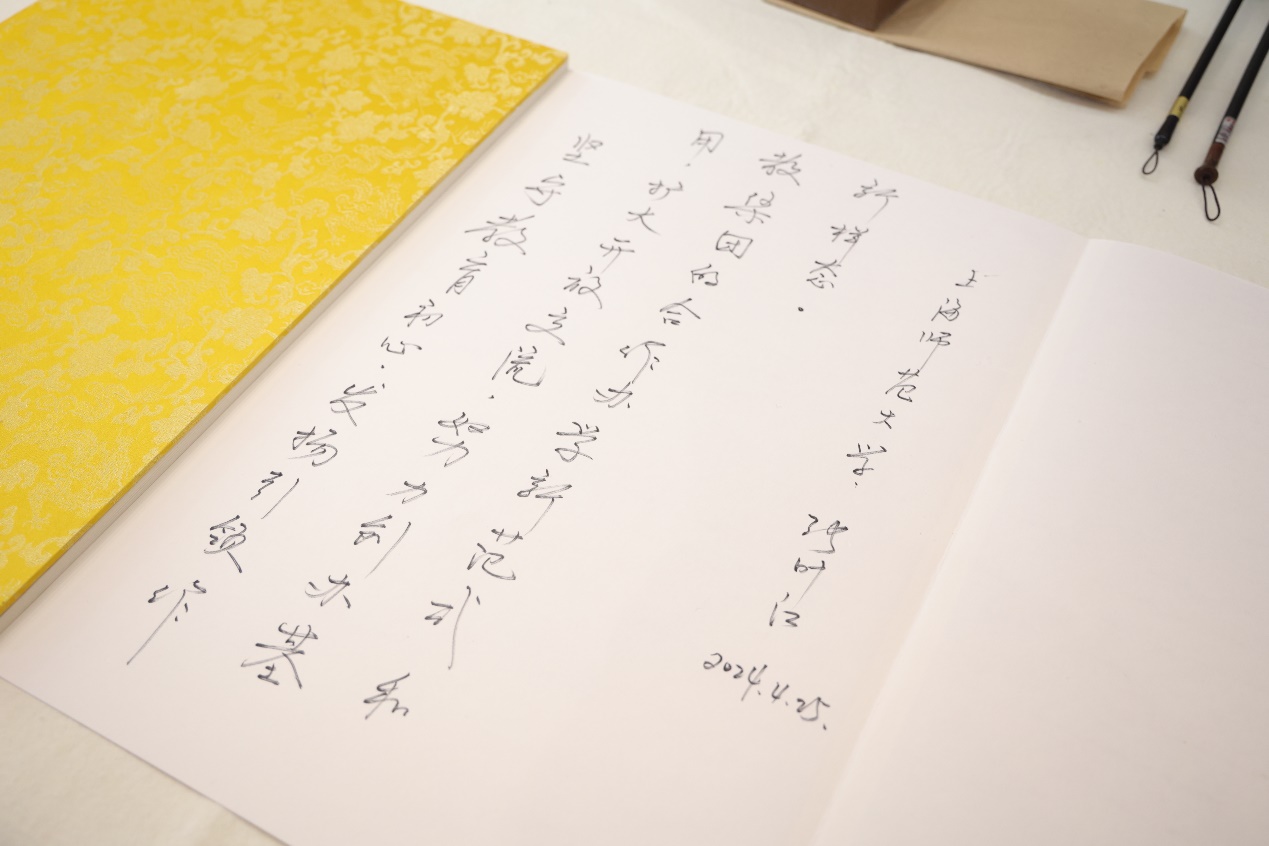 坚守教育初心.发扬引领作
用.扩大开放交流.努力创办基
教集团的合作办学新范式和
新样态.
上海师范大学.张叶江
2024.4.25.